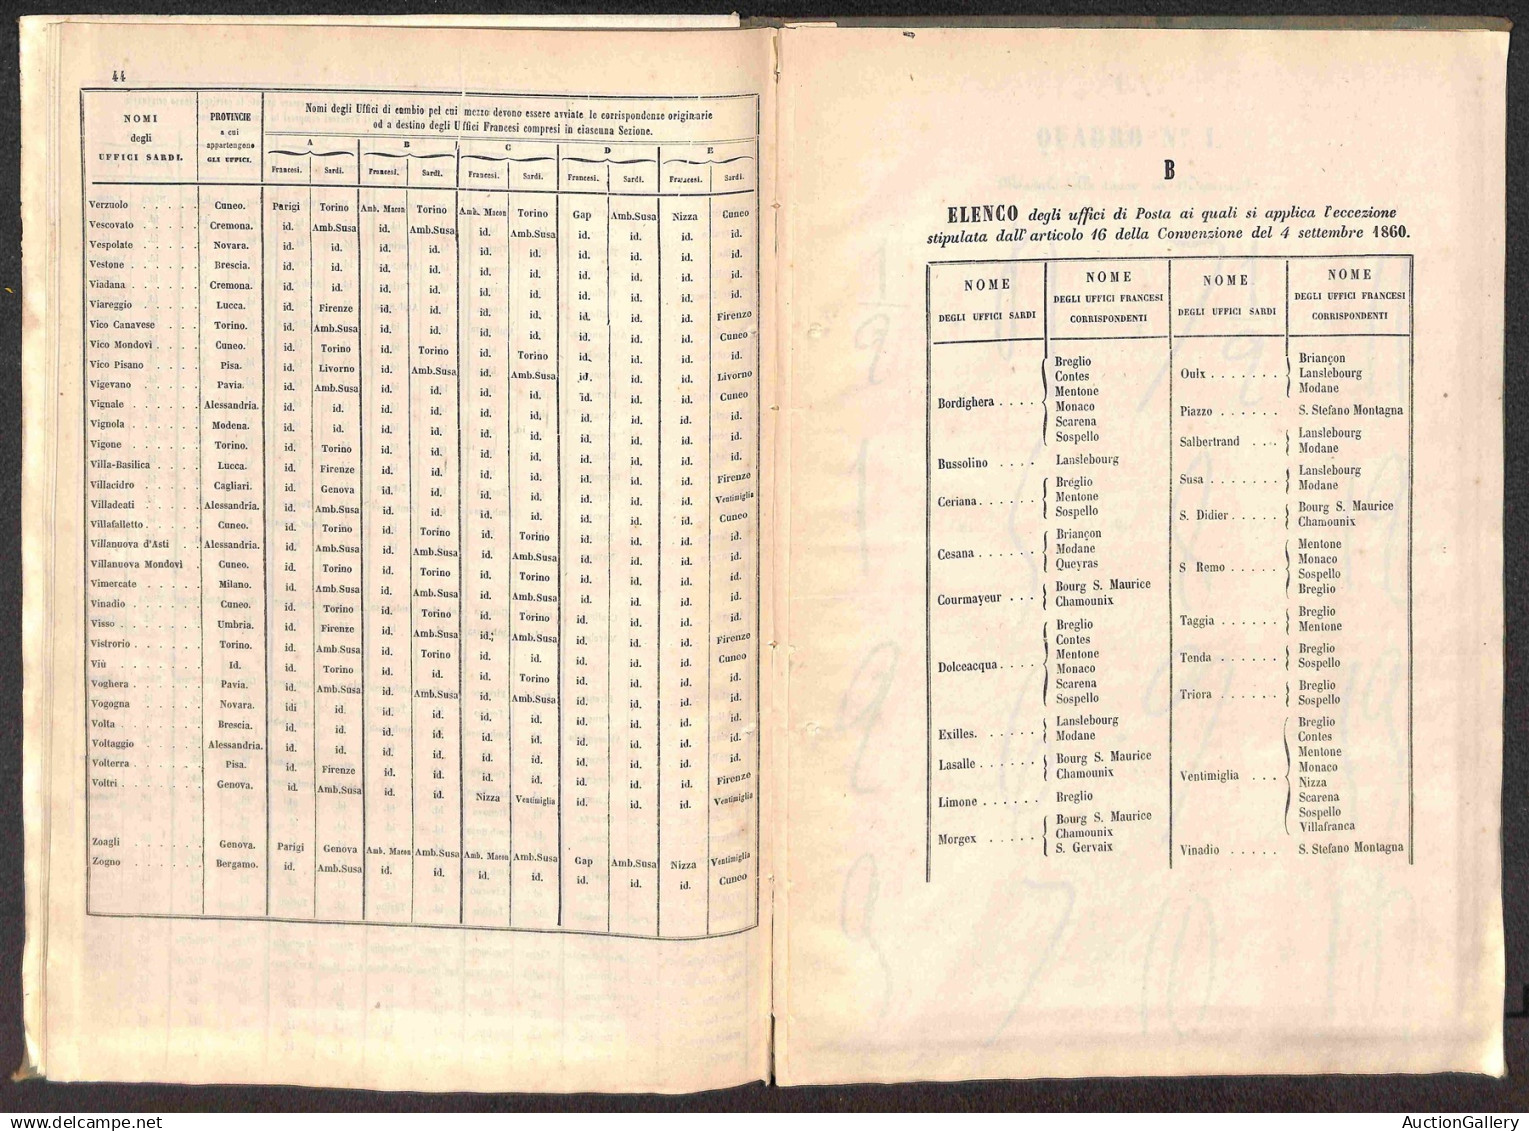 44
NOMI
degli
UFFICI SARDI.
PROVINCIE
a cui
appartengono
GLI UFFICI.
Nomi degli Uffici di cambio pel cui mezzo devono essere avviate le corrispondenze originarie
od a destino degli Uffici Francesi compresi in ciascuna Sezione.
A B C D E
Francesi. Sardi. Francesi. Sardi. Francesi. Sardi. Francesi. Sardi. Francesi. Sardi.
Verzuolo . . . . . Cuneo. Parigi Torino Amb. Macon Torino Amb. Macon Torino Gap Amb.Susa Nizza Cuneo
Vescovato . . . . . Cremona. id. Amb.Susa id. Amb.Susa id. Amb.Susa id. id. id. id.
Vespolate . . . . . Novara. id. id. id. id. id. id. id. id. id. id.
Vestone . . . . . Brescia. id. id. id. id. id. id. id. id. id. id.
Viadana . . . . . Cremona. id. id. id. id. id. id. id. id. id. id.
Viareggio . . . . . Lucca. id. Firenze id. id. id. id. id. id. id. Firenzo
Vico Canavese . . . Torino. id. Amb.Susa id. id. id. id. id. id. id. Cuneo
Vico Mondovì . . . Cuneo. id. Torino id. Torino id. Torino id. id. id. id.
Vico Pisano . . . . Pisa. id. Livorno id. Amb.Susa id. Amb.Susa id. id. id. Livorno
Vigevano . . . . . Pavia. id. Amb.Susa id. id. id. id. id. id. id. Cuneo
Vignale . . . . . Alessandria. id. id. id. id. id. id. id. id. id. id.
Vignola . . . . . Modena. id. id. id. id. id. id. id. id. id. id.
Vigone . . . . . Torino. id. Torino id. id. id. id. id. id. id. id.
Villa-Basilica . . . . Lucca. id. Firenze id. id. id. id. id. id. id. Firenzo
Villacidro . . . . . Cagliari. id. Genova id. id. id. id. id. id. id. Ventimiglia
Villadeati . . . . . Alessandria. id. Amb.Susa id. id. id. id. id. id. id. Cuneo
Villafalletto . . . . . Cuneo. id. Torino id. Torino id. Torino id. id. id. id.
Villanuova d'Asti . . Alessandria. id. Amb.Susa id. Amb.Susa id. Amb.Susa id. id. id. id.
Villanuova Mondovì . Cuneo. id. Torino id. Torino id. Torino id. id. id. id.
Vimercate . . . . . Milano. id. Amb.Susa id. Amb.Susa id. Amb.Susa id. id. id. id.
Vinadio . . . . . Cuneo. id. Torino id. Torino id. Torino id. id. id. id.
Visso . . . . . Umbria. id. Firenze id. Amb.Susa id. Amb.Susa id. id. id. Firenzo
Vistrorio . . . . . Torino. id. Amb.Susa id. Torino id. id. id. id. id. Cuneo
Viù . . . . . Id. id. Torino id. Amb.Susa id. Torino id. id. id. id.
Voghera . . . . . Pavia. id. Amb.Susa id. Amb.Susa id. Amb.Susa id. id. id. id.
Vogogna . . . . . Novara. idi id. id. id. id. id. id. id. id. id.
Volta . . . . . Brescia. id. id. id. id. id. id. id. id. id. id.
Voltaggio . . . . . Alessandria. id. id. id. id. id. id. id. id. id. id.
Volterra . . . . . Pisa. id. Firenze id. id. id. id. id. id. id. Firenzo
Voltri . . . . . Genova. id. Amb.Susa id. id. Nizza Ventimiglia id. id. id. Ventimiglia
Zoagli . . . . . Genova. Parigi Genova Amb. Macon Amb.Susa Amb. Macon Amb.Susa Gap Amb.Susa Nizza Ventimiglia
Zogno . . . . . Bergamo. id. Amb.Susa id. id. id. id. id. id. id. Cuneo
QUADRO N° 1
B
ELENCO degli uffici di Posta ai quali si applica l'eccezione
stipulata dall'articolo 16 della Convenzione del 4 settembre 1860.
NOME
DEGLI UFFICI SARDI
NOME
DEGLI UFFICI FRANCESI
CORRISPONDENTI
NOME
DEGLI UFFICI SARDI
NOME
DEGLI UFFICI FRANCESI
CORRISPONDENTI
Bordighera . . . .
Breglio
Contes
Mentone
Monaco
Scarena
Sospello
Bussolino . . . . Lanslebourg
Ceriana . . . . . .
Breglio
Mentone
Sospello
Cesana . . . . . .
Briançon
Modane
Queyras
Courmayeur . . .
Bourg S. Maurice
Chamounix
Dolceacqua . . . .
Breglio
Contes
Mentone
Monaco
Scarena
Sospello
Exilles. . . . . .
Lanslebourg
Modane
Lasalle . . . . . .
Bourg S. Maurice
Chamounix
Limone . . . . . . Breglio
Morgex . . . . .
Bourg S. Maurice
Chamounix
S. Gervaix
Oulx . . . . . . .
Briançon
Lanslebourg
Modane
Piazzo . . . . . . S. Stefano Montagna
Salbertrand . . .
Lanslebourg
Modane
Susa . . . . . . .
Lanslebourg
Modane
S. Didier . . . . .
Bourg S. Maurice
Chamounix
S Remo . . . . .
Mentone
Monaco
Sospello
Breglio
Taggia . . . . . .
Breglio
Mentone
Tenda . . . . . .
Breglio
Sospello
Triora . . . . . .
Breglio
Sospello
Ventimiglia . . .
Breglio
Contes
Mentone
Monaco
Nizza
Scarena
Sospello
Villafranca
Vinadio . . . . . S. Stefano Montagna
AuctionGallery